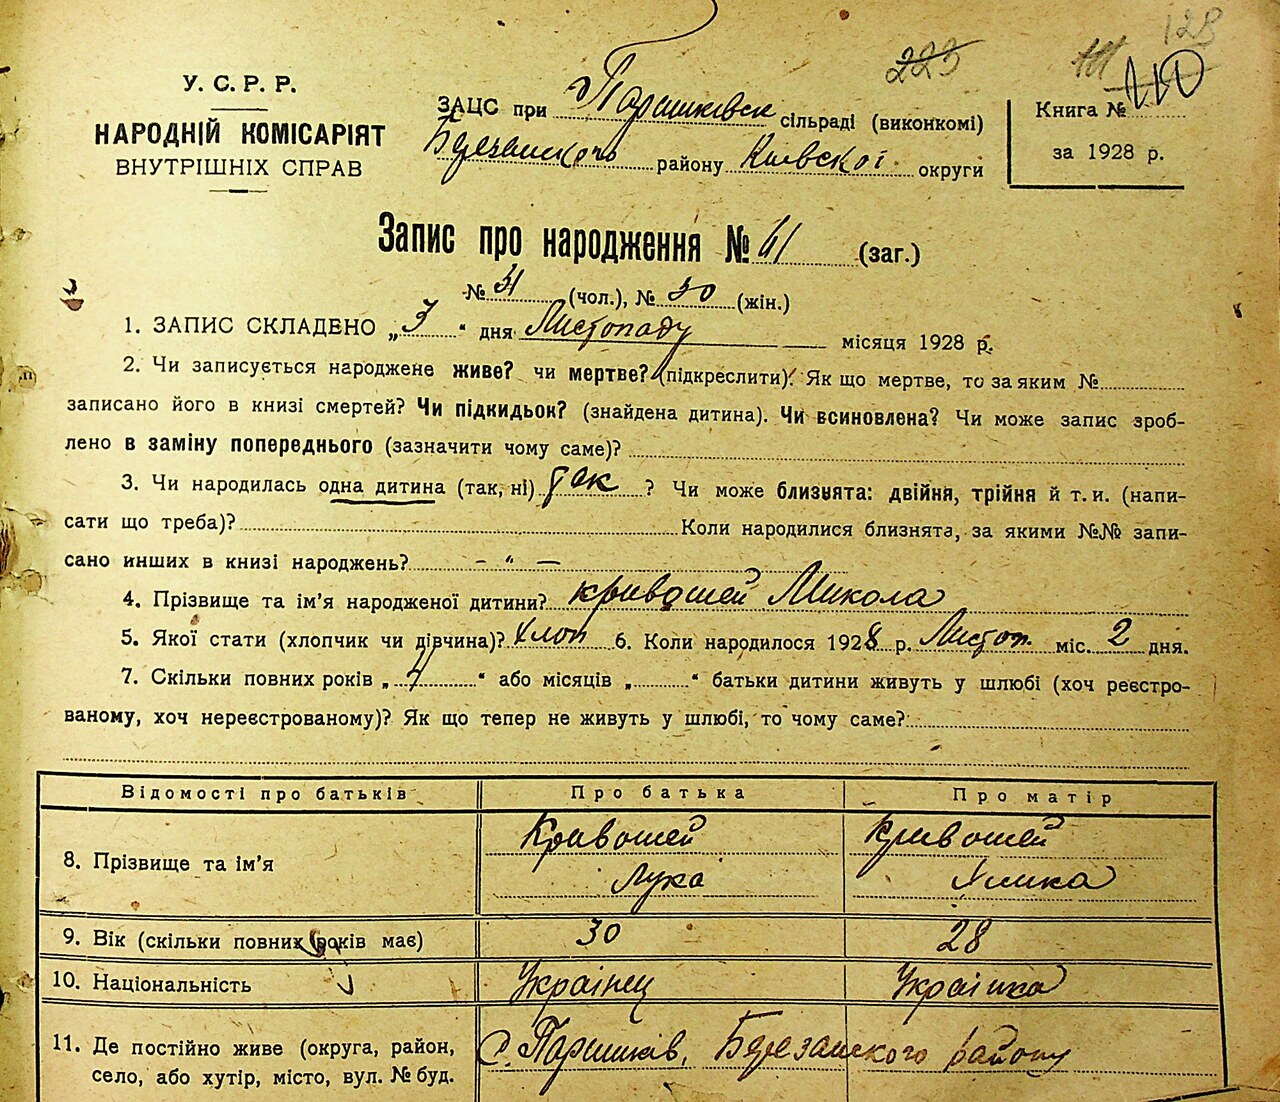 223
128
У. С. Р. Р.
НАРОДНІЙ КОМІСАРІЯТ
ВНУТРІШНІХ СПРАВ
ЗАЦС при Паришківск сільраді (виконкомі)
Березанського району Київської округи
Книга № 110
за 1928 р.
Запис про народження № 61 (заг.)
№ 31 (чол.), № 30 (жін.)
1. ЗАПИС СКЛАДЕНО „3" дня Листопаду місяця 1928 р.
2. Чи записується народжене живе? чи мертве? (підкреслити). Як що мертве, то за яким №
записано його в книзі смертей? Чи підкидьок? (знайдена дитина). Чи всиновлена? Чи може запис зроб-
лено в заміну попереднього (зазначити чому саме)?
3. Чи народилась одна дитина (так, ні) так ? Чи може близнята: двійня, трійня й т. и. (напи-
сати що треба)? Коли народилися близнята, за якими №№ запи-
сано инших в книзі народжень? - " —
4. Прізвище та ім'я народженої дитини? Кривошей Микола
5. Якої стати (хлопчик чи дівчина)? Хлоп 6. Коли народилося 1928 р. Листоп. міс. 2 дня.
7. Скільки повних років „7" або місяців „ " батьки дитини живуть у шлюбі (хоч реєстро-
ваному, хоч нереєстрованому)? Як що тепер не живуть у шлюбі, то чому саме?
Відомості про батьків Про батька Про матір
8. Прізвище та ім'я Кривошей Кривошей
Лука
9. Вік (скільки повних років має) 30 28
10. Національність Українец Українка
11. Де постійно живе (округа, район, с. Паришків, Березанського району
село, або хутір, місто, вул. № буд.